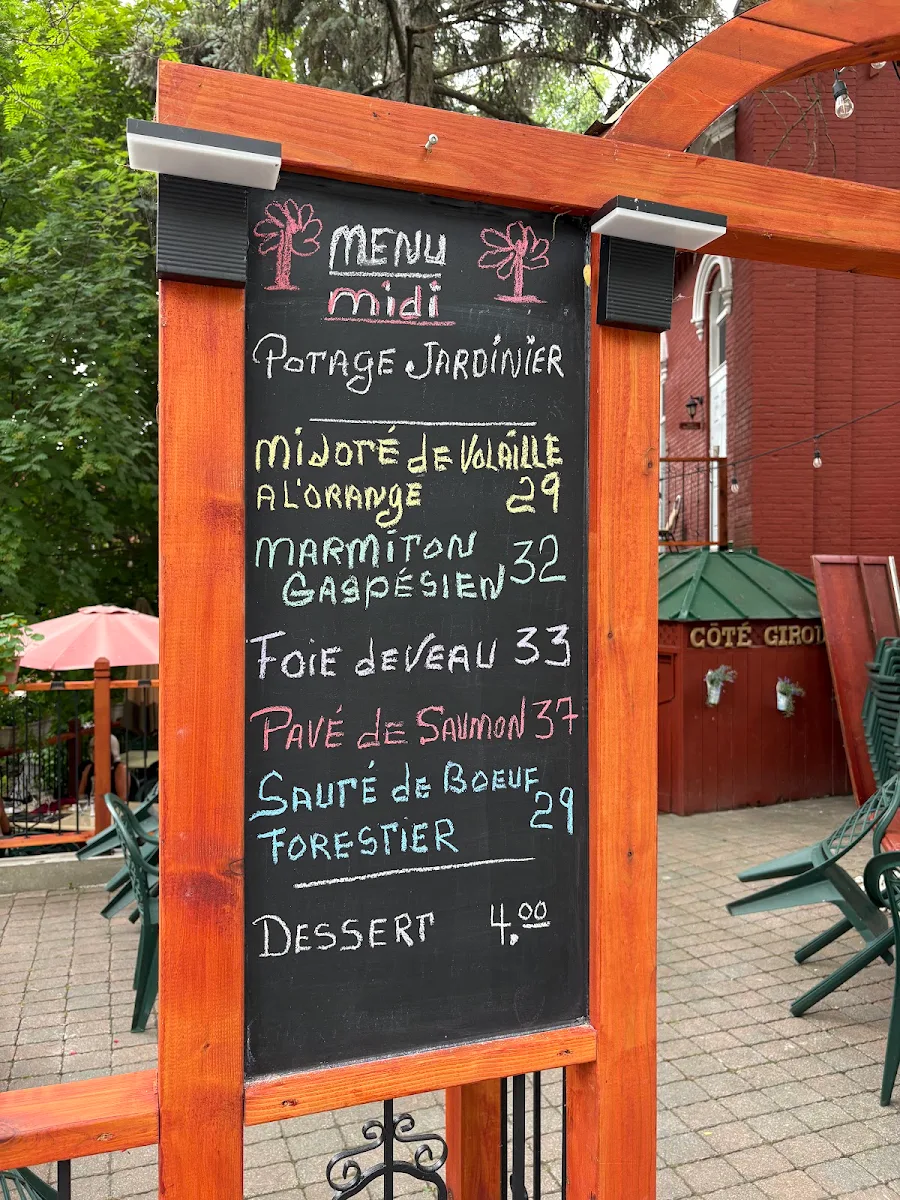 MENU
midi
POTAGE JARDINIER
MIJOTÉ de VOLAILLE
A L'ORANGE 29
MARMITON
GASPÉSIEN 32
FOIE de VEAU 33
PAVÉ de SAUMON 37
SAUTÉ de BOEUF
FORESTIER 29
DESSERT 4.00
CÔTÉ